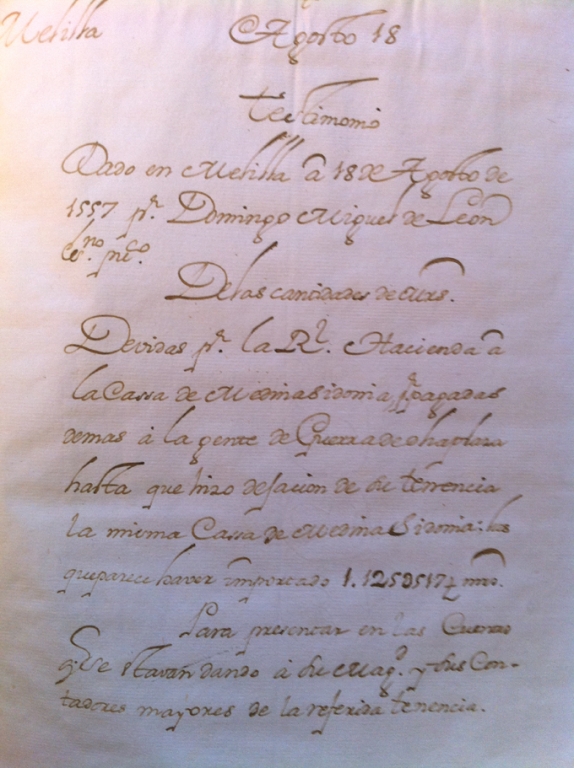 Melilla Agosto 18
Testimonio
Dado en Melilla â 18 de Agosto de
1557 pr. Domingo Miguel de Leon
esno. pucco.
De las cantidades de mrs.
Devidas pr. la Rl. Hacienda â
la Cassa de Medina Sidonia, pr. pagadas
demas â la gente de Guerra de dha plaza
hasta que hizo dejacion de su tenencia
la misma Cassa de Medina Sidonia: las
que parece haver ymportado mrs.
Para presentar en las Cuentas
q. se estavan dando â su Magd. y sus Con-
tadores mayores de la referida tenencia.